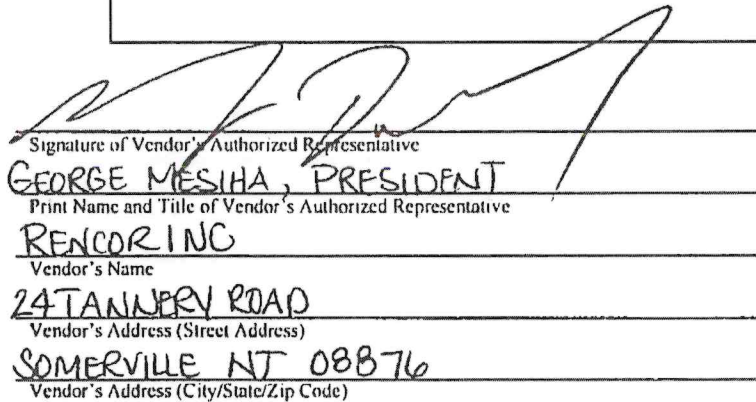 Signature of Vendor's Authorized Representative
GEORGE MESIHA, PRESIDENT
Print Name and Title of Vendor's Authorized Representative
RENCOR INC
Vendor's Name
24 TANNERY ROAD
Vendor's Address (Street Address)
SOMERVILLE NJ 08876
Vendor's Address (City/State/Zip Code)